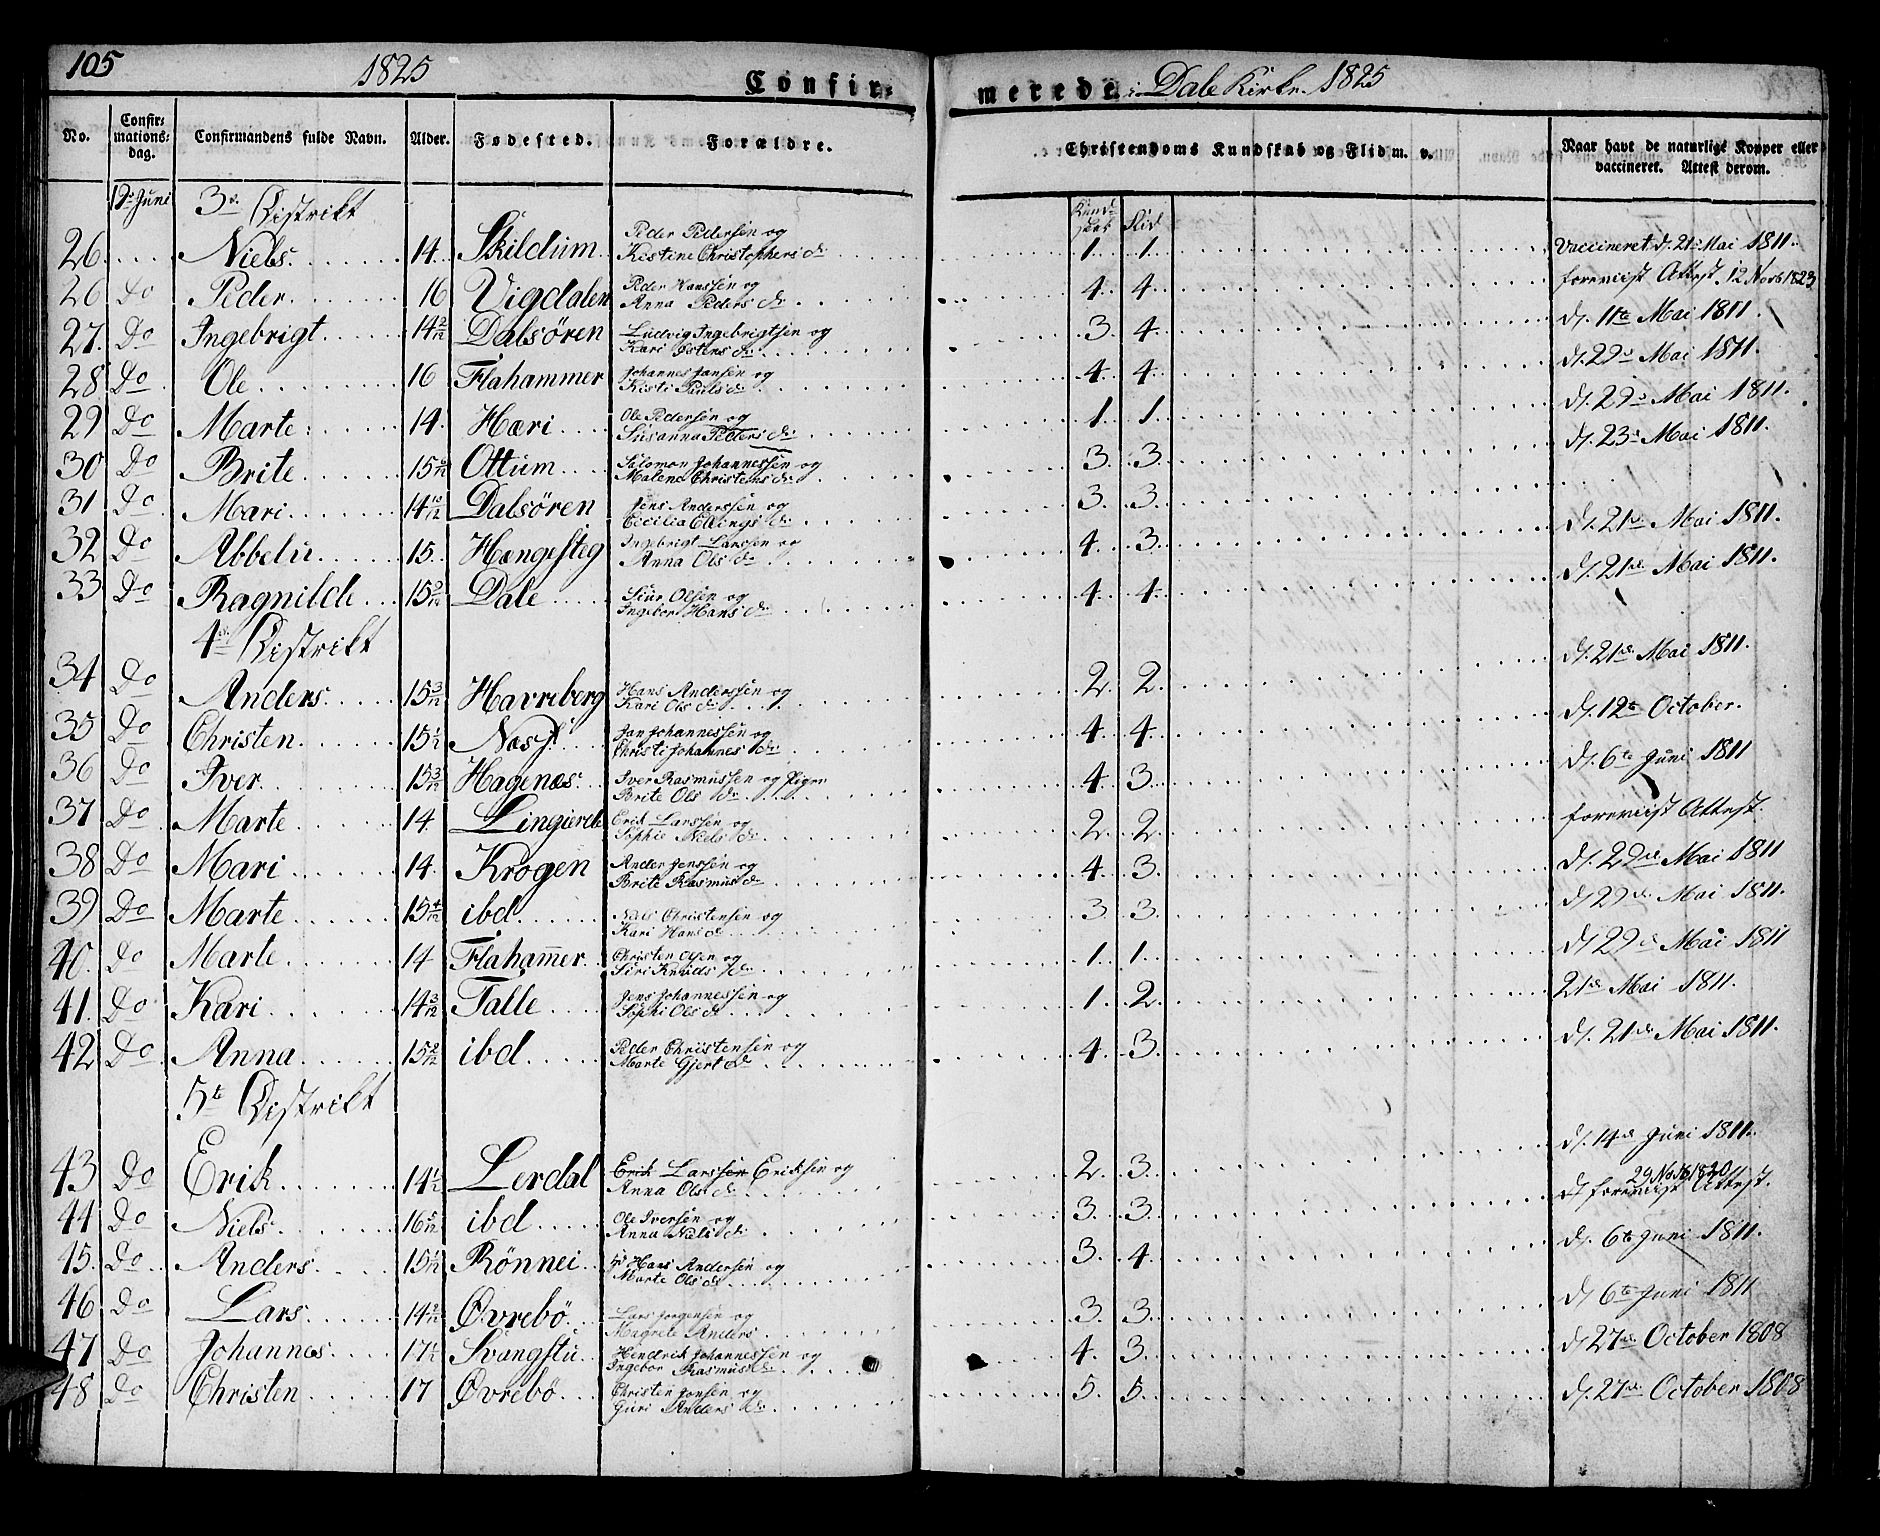 105 1825 Confir= merede i Dale Kirke. 1825
No. Confir=mations=dag. Confirmandens fulde Navn. Alder. Fødested. Forældre. Christendoms Kundskab og Flid m. v. Naar havt de naturlige Kopper eller vaccineret. Attest derom.
19de Juni 3de Distrikt Kundskab Flid
26. Niels. 14 Skildum Peder Pedersen og Kistine Christophers dr 1. 1. vaccineret d. 21de Mai 1811.
26 Do Peder 16 Vigdalen Peder Hanssen og Anna Peders dr 4. 4. foreviist Attest. 12 Novb 1823
27. Do Ingebrigt 14 2/12 Dalsören Ludvig Ingebrigtsen og Kari Istens dr 3. 4. d. 11te Mai 1811.
28. Do Ole 16 Flahammer Johannes Jansen og Kisti Pauls dr 4. 4. d. 29de Mai 1811.
29 Do Marte 14. Hæri Ole Pedersen og Susanna Peders dr 1. 1. d. 29de Mai 1811.
30 Do Brite 15 6/12 Ottum Salomon Johannessen og Malene Christens dr 3. 3. d. 23de Mai 1811.
31 Do Mari 14 10/12 Dalsören Jens Anderssen og Cecilia Ellings dr 3. 3.
32 Do Abbelu 15. Hængesteg Ingebrigt Larssen og Anna Ols dr 4. 3. d. 21de Mai 1811.
33 Do Ragnilde 15 2/12 Dale Siur Olsen og Ingebor Hans dr 4. 4. d. 21de Mai 1811.
4de Distrikt
34 Do Anders 15 3/12 Havreberg Hans Anderssen og Kari Ols dr 2. 2. d. 21de Mai 1811.
35 Do Christen 15 1/2 Næss Jan Johannessen og Christi Johannes dr 4. 4. d. 12te October.
36 Do Iver 15 3/12 Hagenæs Iver Rasmussen og Pigen Brite Ols dr 4. 3. d. 6te Juni 1811
37 Do Marte 14 Lingierde Erik Larssen og Sophie Niels dr 2. 2. foreviist Attest.
38 Do Mari 14. Krogen Ander Jenssen og Brite Rasmus dr 4. 3. d. 29de Mai 1811
39 Do Marte 15 4/12 ibd Nils Christensen og Kari Hans dr 3. 3. d. 29de Mai 1811.
40. Do Marte 14 Flaham̄er Christen Olsen og Siri Knuds dr 1. 1. d. 29de Mai 1811
41. Do Kari 14 3/12 Talle Jens Johannessen og Sophi Ols dr 1. 2. 21de Mai 1811.
42 Do Anna 15 2/12 ibd Peder Christensen og Marte Gjert dr 4. 3. d. 21de Mai 1811.
5te Distrikt
43 Do Erik 14 1/2 Lerdal Erik Larssen Eriksen og Anna Ols dr 2. 3. d. 14de Juni 1811.
44 Do Niels 16 5/12 ibd Ole Iversen og Anna Nils dr 3. 3. d. foreviist Attest. 29 Novb 1820
45. Do Anders 15 1/12 Rönnei Hans Andersen og Marte Ols dr 3. 4. d. 6te Juni 1811.
46 Do Lars 14 2/12 Øvrebö Lars Jorgensen og Magrete Anders 3. 3. d. 6te Juni 1811
47 Do Johannes 17 1/2 Svangstu Hendrik Johannessen og Ingebor Rasmus dr 4. 3. d. 27de October 1808
48 Do Christen 17 Øvrebö Christen Jonsen og Guri Anders dr 5. 5. d. 27de October 1808